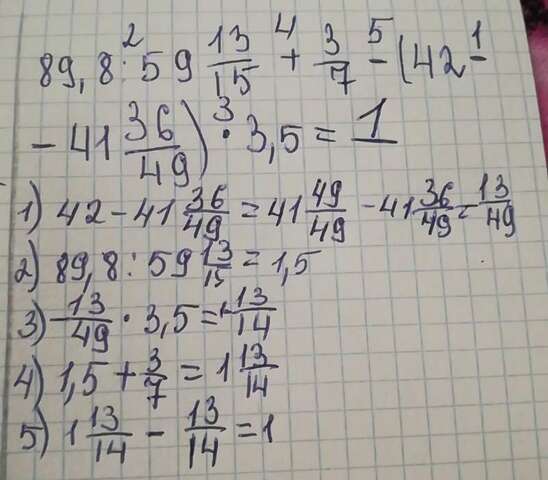 89,8 : 59 13/15 + 3/7 - (42 -
2 4 5 1
- 41 36/49) · 3,5 = 1
3
1) 42 - 41 36/49 = 41 49/49 - 41 36/49 = 13/49
2) 89,8 : 59 13/15 = 1,5
3) 13/49 · 3,5 = 13/14
4) 1,5 + 3/7 = 1 13/14
5) 1 13/14 - 13/14 = 1